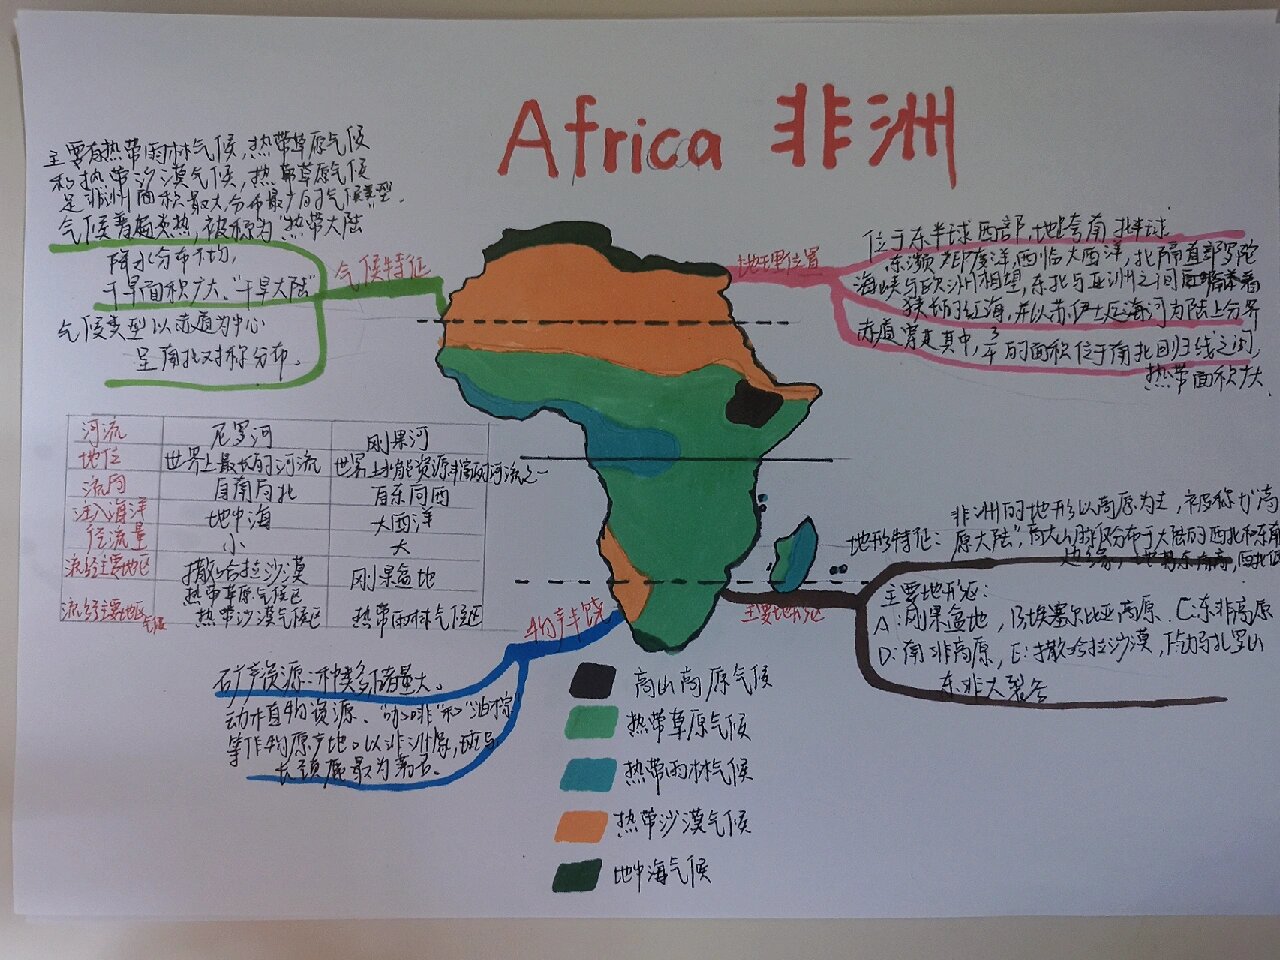 Africa 非洲
主要有热带雨林气候,热带草原气候
和热带沙漠气候,热带草原气候
是非洲面积最大,分布最广的气候类型.
气候普遍炎热,被称为"热带大陆
降水分布不均,
干旱面积广大."干旱大陆"
气候类型以赤道为中心
呈南北对称分布。
气候特征
地理位置
位于东半球西部,地跨南北半球
东濒印度洋,西临大西洋,北隔直布罗陀
海峡与欧洲相望,东北与亚洲之间
狭长的红海,并以苏伊士运河为陆上分界
赤道穿越其中,3/4的面积位于南北回归线之间,
热带面积广大
河流 尼罗河 刚果河
地位 世界上最长的河流 世界上水能资源丰富的河流之一
流向 自南向北 自东向西
注入海洋 地中海 大西洋
径流量 小 大
流经主要地区 撒哈拉沙漠 刚果盆地
流经主要地区气候 热带草原气候区 热带沙漠气候区 热带雨林气候区
地形特征:
非洲的地形以高原为主,被称为"高
原大陆",高大山脉分布于大陆的西北和东南
边缘,地势东南高,西北低
主要地形区
主要地形区:
A:刚果盆地,B:埃塞尔比亚高原.C:东非高原
D:南非高原,E:撒哈拉沙漠,F:乞力马扎罗山
东非大裂谷
物产丰饶
矿产资源:种类多,储量大。
动植物资源、"咖啡"和"油棕
等作物原产地。以非洲象,斑马
长颈鹿最为著名。
高山高原气候
热带草原气候
热带雨林气候
热带沙漠气候
地中海气候